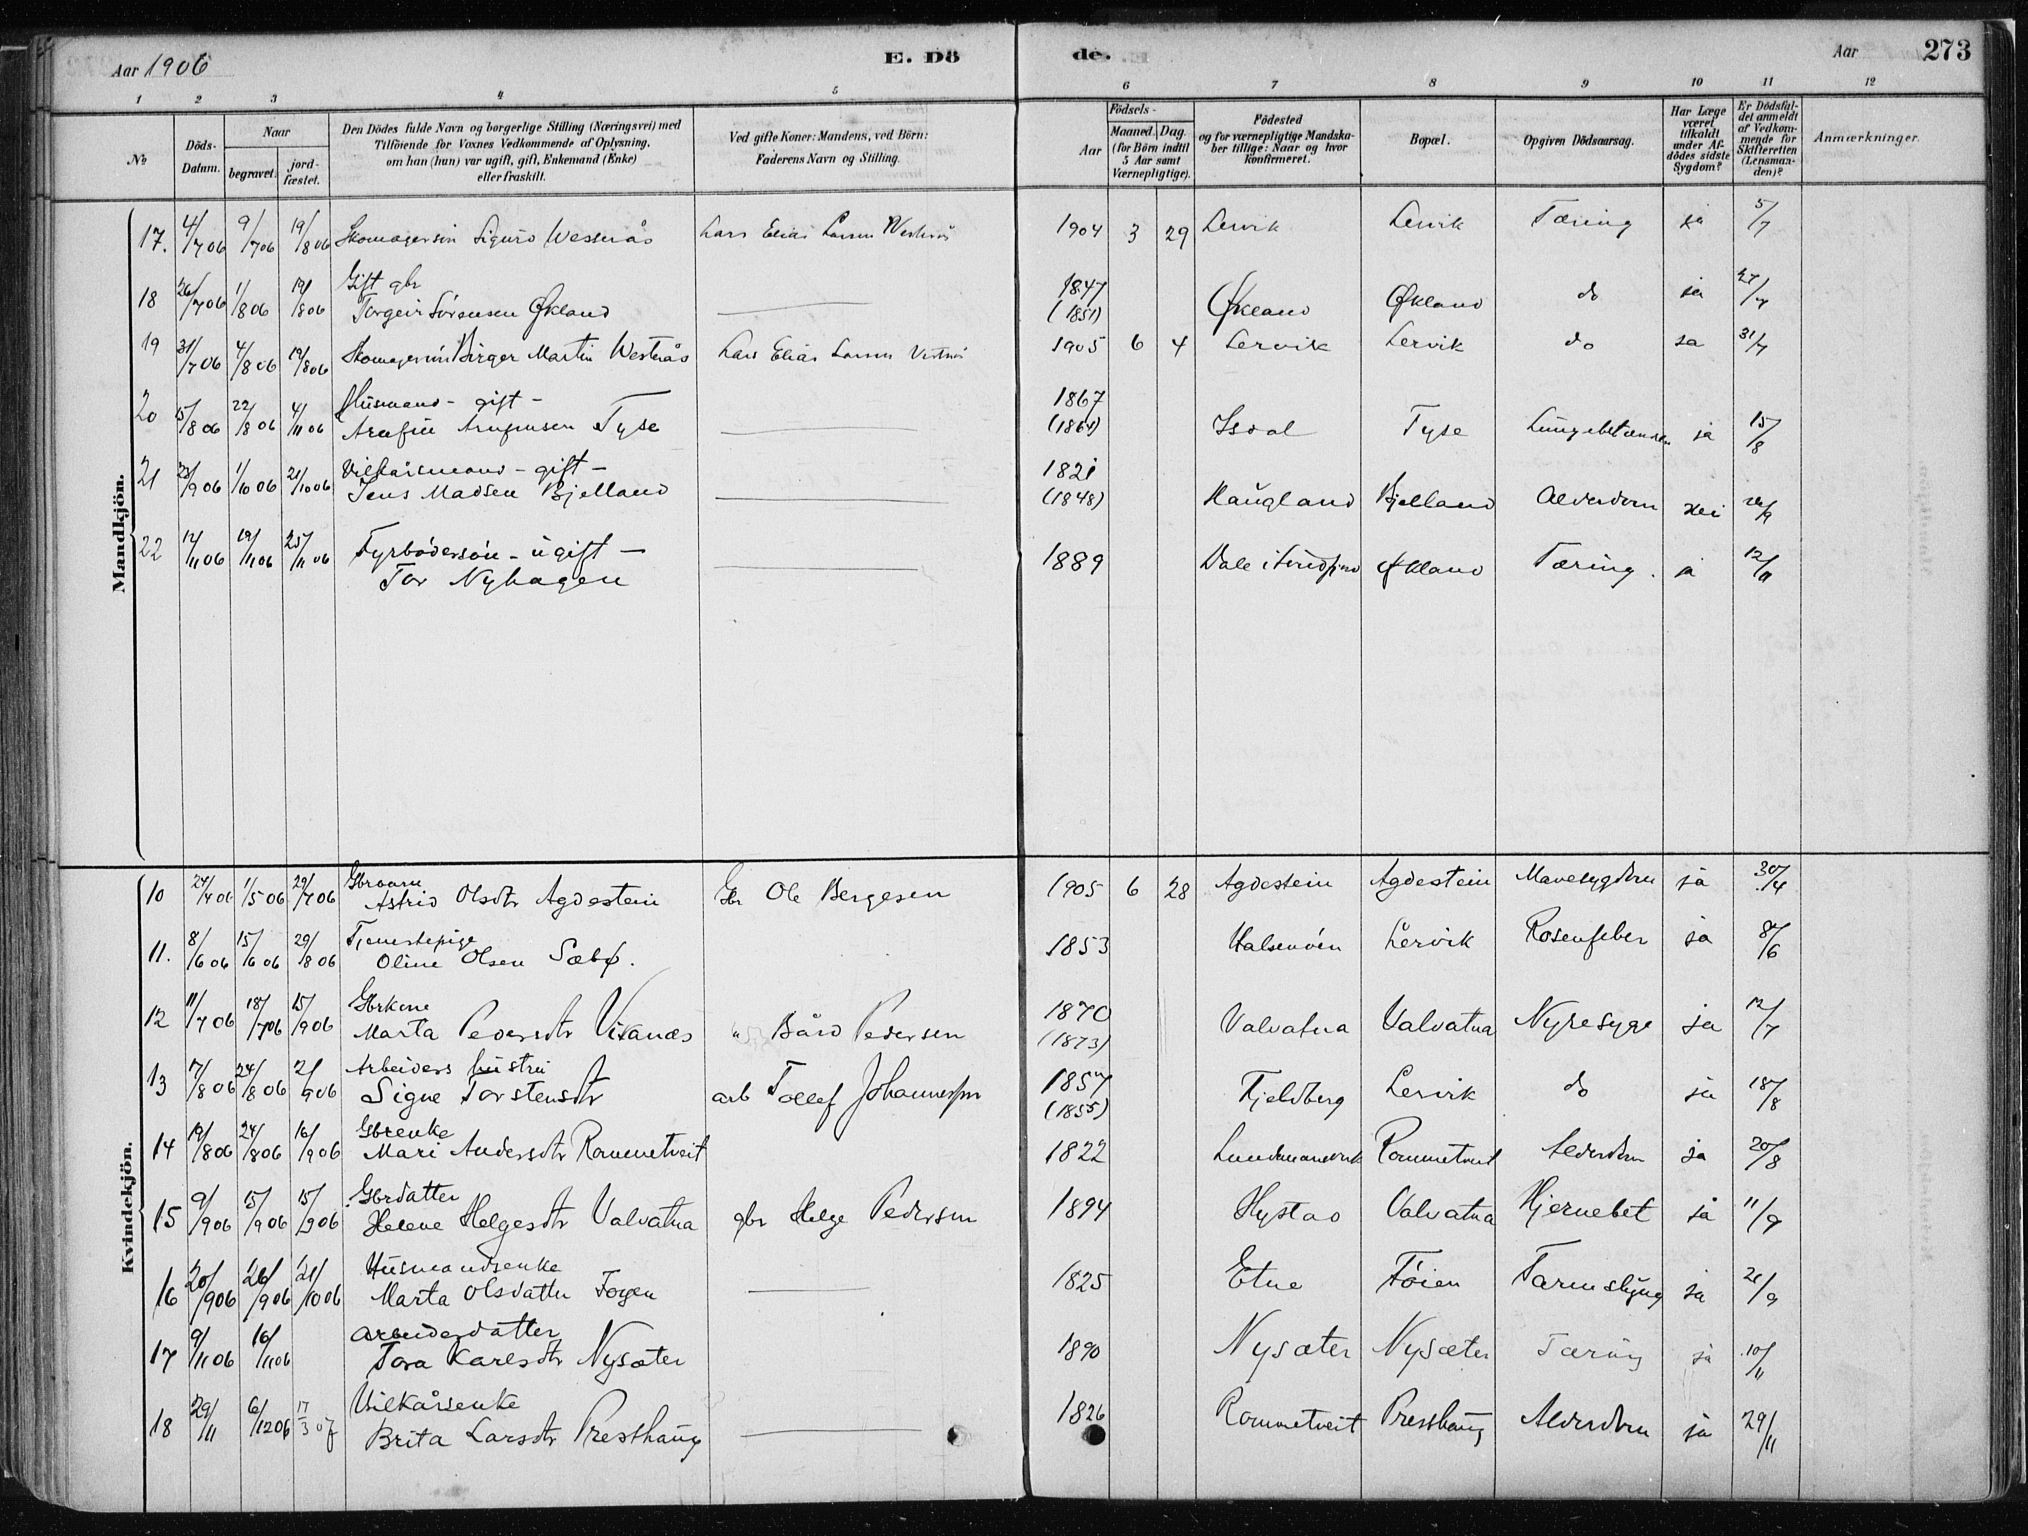 Aar 1906 E. Dö de. Aar 273
1 2 3 4 5 6 7 8 9 10 11 12
No Döds-Datum. Naar begravet. jord-fæstet. Den Dödes fulde Navn og borgerlige Stilling (Næringsvei) med Tilföiende for Voxnes Vedkommende af Oplysning, om han (hun) var ugift, gift, Enkemand (Enke) eller fraskilt. Ved gifte Koner: Mandens, ved Börn: Faderens Navn og Stilling. Aar Födsels- Maaned. Dag. (for Börn indtil 5 Aar samt Værnepligtige). Födested og for værnepligtige Mandska-ber tillige: Naar og hvor konfirmeret. Bopæl. Opgiven Dödsaarsag. Har Læge været tilkaldt under Af-dödes sidste Sygdom? Er Dödsfal-det anmeldt af Vedkom-mende for Skifteretten (Lensman-den)? Anmærkninger.
Mandkjön.
17. 4/7 06 9/7 06 19/8 06 Skomagersön Sigurd Westerås Lars Elias Larsen Westerås 1904 3 29 Lervik Lervik Tæring ja 5/7
18 26/7 06 1/8 06 19/8 06 Gift gbr
Torgeir Sörensen Økland 1847 (1851) Økland Økland do ja 27/7
19 31/7 06 4/8 06 19/8 06 Skomagersön Birger Martin Westerås Lars Elias Larsen 1905 6 4 Lervik Lervik do ja 31/7
20 15/8 06 22/8 06 4/11 06 Husmand - gift -
Arnfin Arnfinsen Tyse 1867 (1864) Isdal Tyse Lungebetændelse ja 15/8
21 23/9 06 1/10 06 21/10 06 Vilkårsmand - gift -
Jens Madsen Bjelland 1821 (1848) Haugland Bjelland Alderdom nei
22 12/11 06 19/11 06 25/11 06 Fyrbödersön - ugift -
Tor Nyhagen 1889 Dale i Söndfjord Økland Tæring. ja 12/11
Kvindekjön.
10 24/4 06 1/5 06 29/7 06 Gbrbarn
Astrid Olsdtr Agdestein Gbr Ole Bergesen 1905 6 28 Agdestein Agdestein Mavesygdom ja 30/4
11. 8/6 06 15/6 06 29/8 06 Tjenestepige
Oline Olsen Sæbø. 1853 Halsenöen Lervik Rosenfeber ja 8/6
12 11/7 06 18/7 06 15/9 06 Gbrkone
Marta Pedersdtr Vikanæs " Bård Pedersen 1870 (1873) Valvatna Valvatna Nyresyge ja 12/7
13 17/8 06 24/8 06 2/9 06 Arbeiders hustru
Signe Torstensdtr arb Tollef Johannessen 1857 (1855) Fjeldberg Lervik do ja 18/8
14 19/8 06 24/8 06 16/9 06 Gbrenke
Mari Andersdtr Rommetveit 1822 Rommetveit Alderdom ja 20/8
15 9/9 06 15/9 06 15/9 06 Gbrdatter
Helene Helgesdtr Valvatna gbr Helge Pedersen 1894 Hystad Valvatna Hjernebet ja 11/9
16 20/9 06 26/9 06 21/10 06 Husmandsenke
Marta Olsdatter Foyen 1825 Etne Föien Tarmslyng ja 21/9
17 9/11 06 16/11 06 Arbeiderdatter
Tora Karlsdtr Nysæter 1890 Nysæter Nysæter Tæring ja 10/11
18 29/11 6/12 06 17/3 07 Vilkårsenke
Brita Larsdtr Presthaug 1826 Rommetveit Presthaug Alderdom ja 29/11